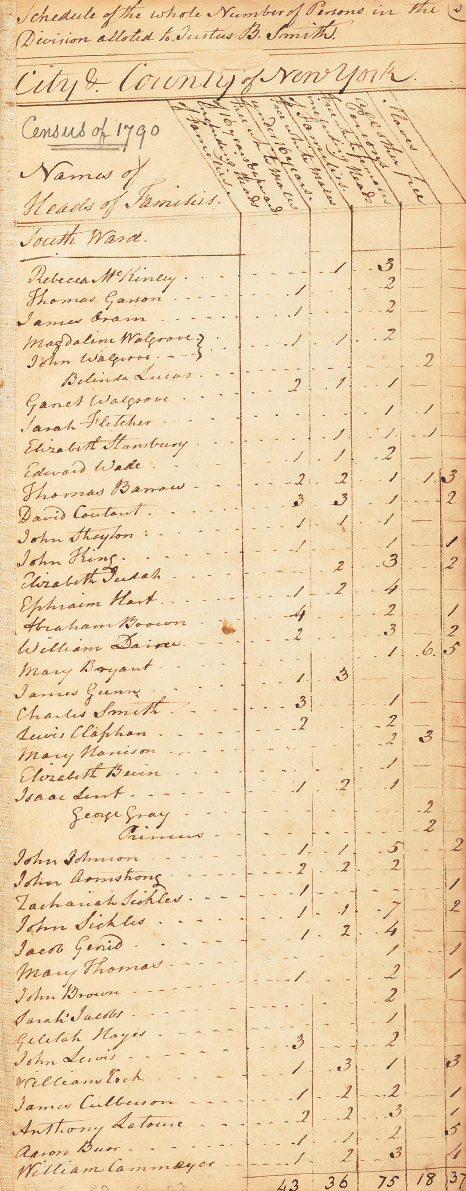 Schedule of the whole Number of Persons in the
Division alloted to Justus B. Smith.
City & County of New York.
Census of 1790
Names of
Heads of Families.
Free white Males of 16 years & upward including Heads of Families.
Free white Males under 16 years.
Free white Females including Heads of Families.
All other free Persons
Slaves
South Ward.
Rebecca McKinley 1 3
Thomas Ganon 1 2
James Oram 1 2
Magdaline Walgrove 1 1 2
John Walgrove
Belinda Lucas 2
Garret Walgrove 2 1 1
Sarah Fletcher 1 1
Elizabeth Stansbury 1 1 1
Edward Wade 1 1 2
Thomas Barrow 2 2 1 1 3
David Coutant 3 3 1 2
John Sheylon 1 1 1
John King 1 1 1
Elizabeth Judah 2 3 2
Ephraim Hart 1 2 4
Abraham Brown 4 2 1
William Dawe 2 3 2
Mary Bryant 1 6 5
James Gunn 1 3
Charles Smith 3 1
Lewis Claphan 2 2
Mary Harrison 2 3
Elizabeth Bevin 1
Isaac Lent 1 2 1
George Gray 2
Primus 2
John Johnson 1 1 5 2
John Armstrong 2 2 2
Zachariah Sickles 1 1
John Sickles 1 1 7 2
Jacob Gerid 1 2 4
Mary Thomas 1 1
John Brown 1 2 1
Sarah Jacobs 2
Gelitah Hays 1
John Lewis 3 2
William Tock 1 3 1 3
James Culberson 1 2 2 1
Anthony Latour 2 2 3 1
Aaron Burr 1 1 2 5
William Cammeyer 1 2 3 4
43 36 75 18 37